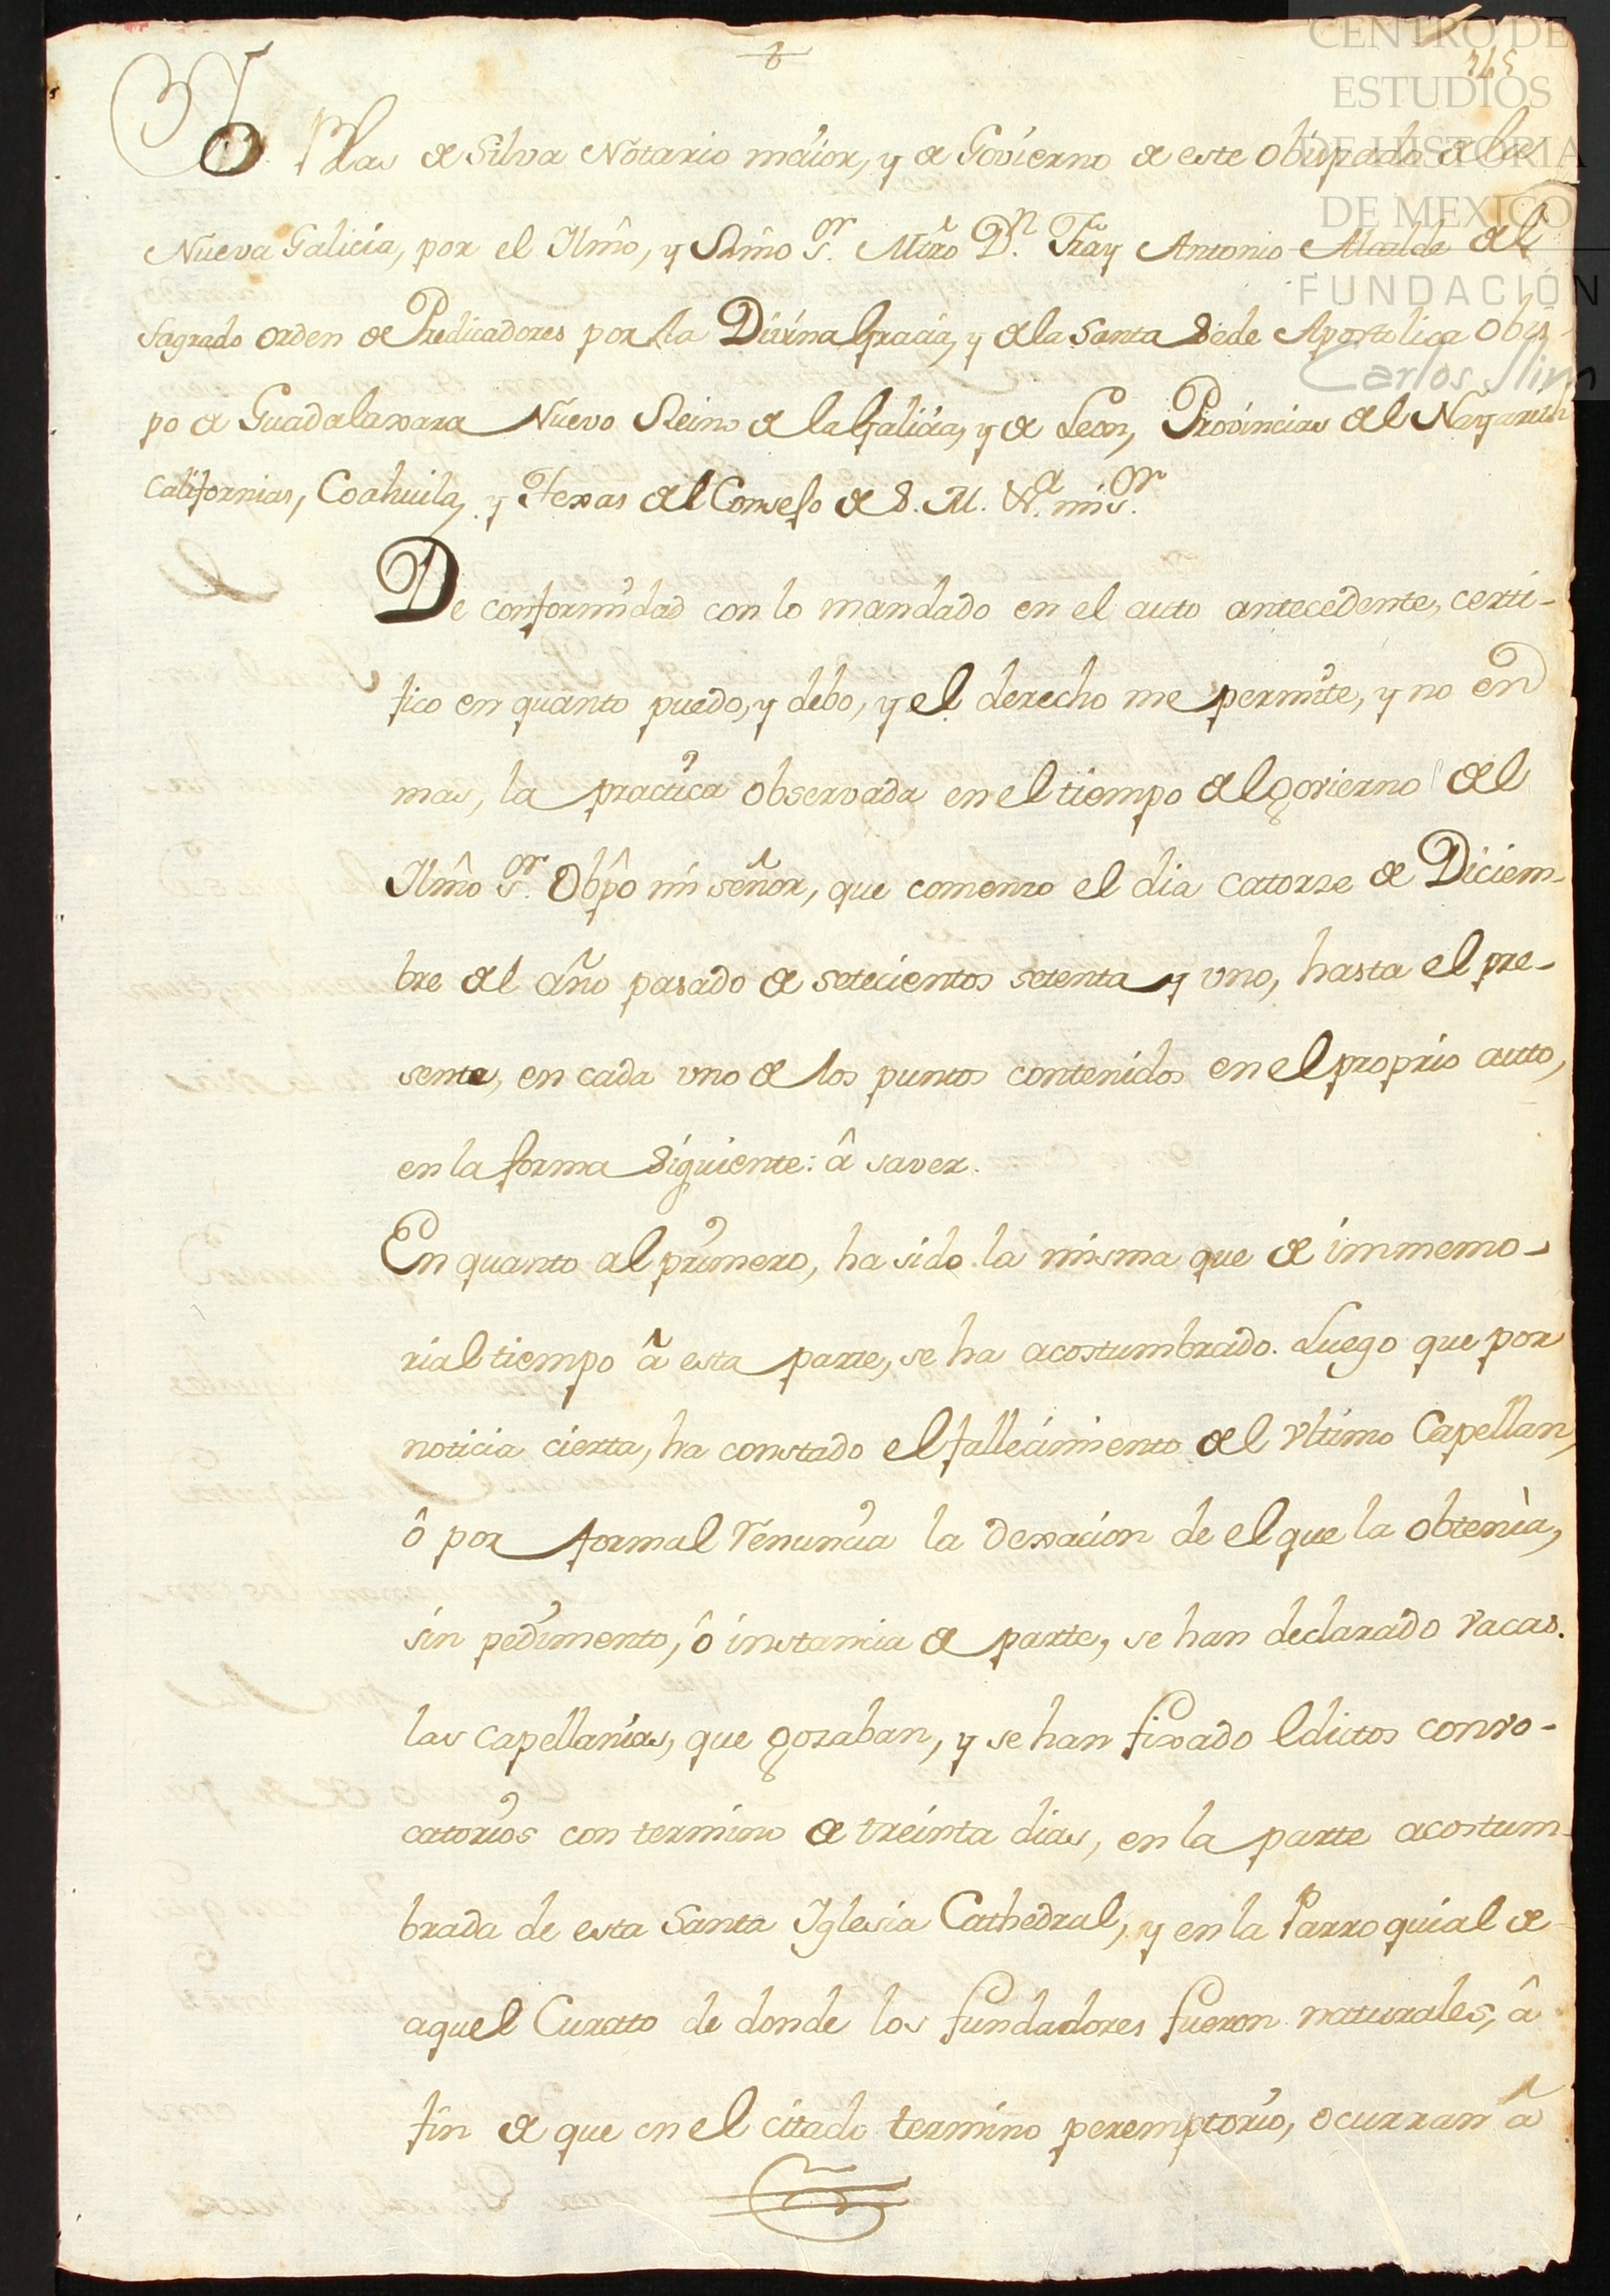 CENTRO DE
ESTUDIOS
DE HISTORIA
DE MEXICO
FUNDACIÓN
Carlos Slim
345
Yo Blas de Silva Notario maior, y de Govierno de este Obispado de la
Nueva Galicia, por el Ilmô, y Rmô Sor. Mtrô Dn. Fray Antonio Alcalde del
Sagrado orden de Predicadores por la Divina Gracia, y de la Santa Sede Apostolica Obis-
po de Guadalaxara Nuevo Reino de la Galicia, y de Leon, Provincias del Nayarith
Californias, Coahuila, y Texas del Consejo de S. M. &a. mi Sor.
De conformidad con lo mandado en el auto antecedente, certi-
fico en quanto puedo, y debo, y el derecho me permite, y no en
mas, la practica observada en el tiempo del govierno del
Ilmô Sor. Obpô mi señor, que comenzo el dia catorze de Diciem-
bre del año pasado de setecientos setenta y uno, hasta el pre-
sente, en cada uno de los puntos contenidos en el proprio auto,
en la forma siguiente: â saver.
En quanto al primero, ha sido la misma que de immemo-
rial tiempo â esta parte, se ha acostumbrado. Luego que por
noticia cierta, ha constado el fallecimiento del Vltimo Capellan,
ô por formal renuncia la dexacion de el que la obtenìa,
sin pedimento, ô instancia de parte, se han declarado vacas.
las Capellanías, que gozaban, y se han fixado Edictos convo-
catorios con termino de treinta dias, en la parte acostum-
brada de esta Santa Iglesia Cathedral, y en la Parroquial de
aquel Curato de donde los fundadores fueron naturales, â
fin de que en el citado termino peremptorio, ocurran â